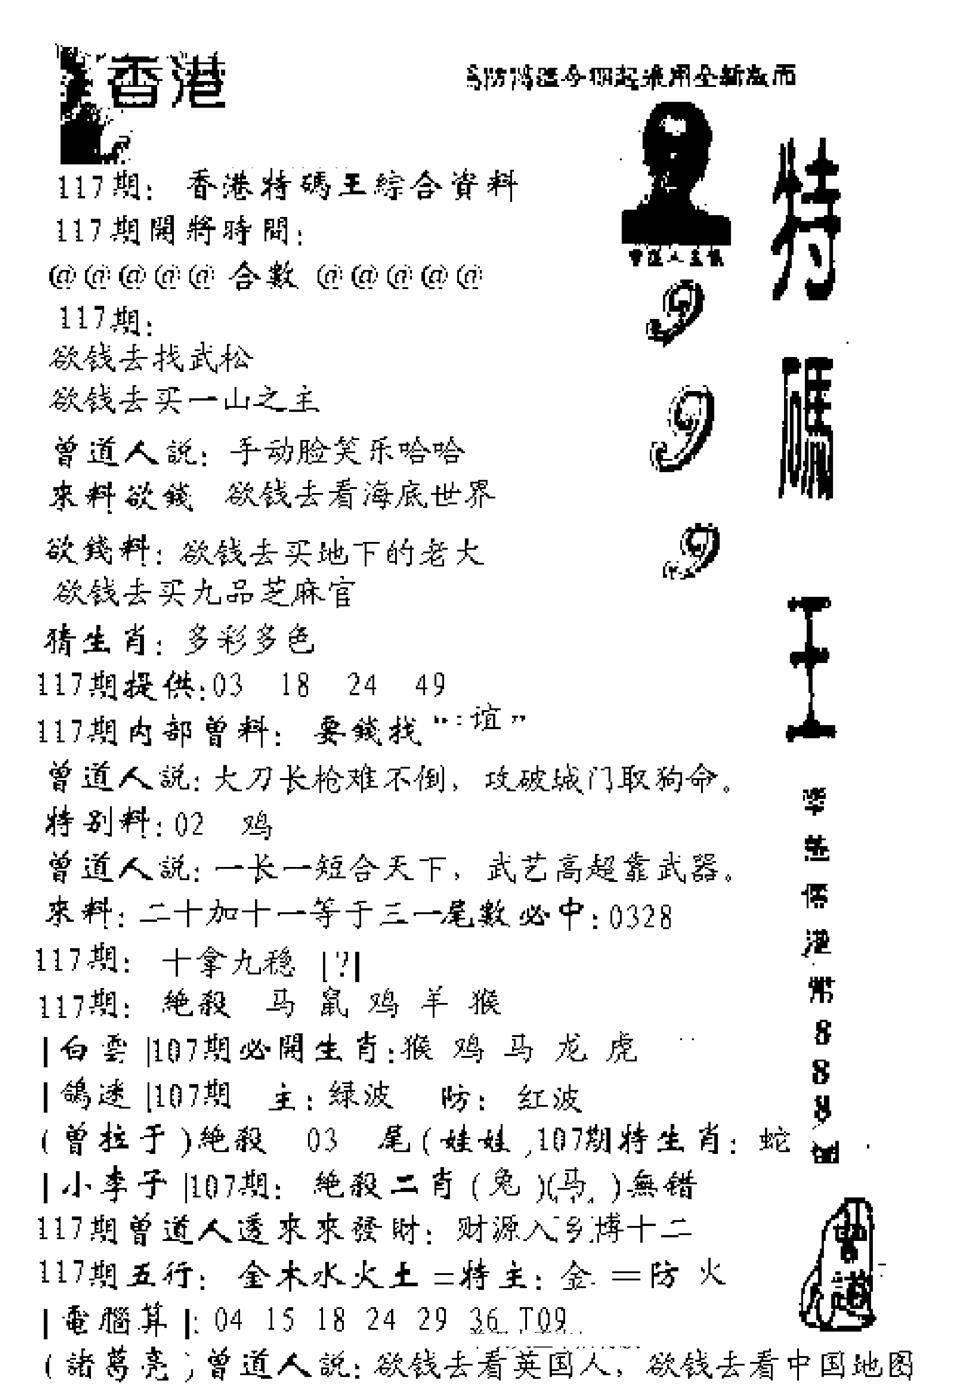 香港
特碼王
999
117期: 香港特碼王綜合資料
117期開將時間:
@@@@@ 合數 @@@@@
117期:
欲钱去找武松
欲钱去买一山之主
曾道人説: 手动脸笑乐哈哈
來料欲錢 欲钱去看海底世界
欲錢料: 欲钱去买地下的老大
欲钱去买九品芝麻官
猜生肖: 多彩多色
117期提供:03 18 24 49
117期内部曾料: 要錢找 “谊”
曾道人説: 大刀长枪难不倒, 攻破城门取狗命。
特别料:02 鸡
曾道人説: 一长一短合天下, 武艺高超靠武器。
來料: 二十加十一等于三一尾數必中:0328
117期: 十拿九稳 [?]
117期: 絶殺 马 鼠 鸡 羊 猴
|白雲|107期必開生肖:猴 鸡 马 龙 虎
|鴿迷|107期 主:绿波 防: 红波
(曾拉于)絶殺 03 尾(娃娃)107期特生肖: 蛇
|小李子|107期: 絶殺二肖(兔)(马)無错
117期曾道人透來來發財: 财源入乡博十二
117期五行: 金木水火土=特主: 金 =防 火
|電腦算|: 04 15 18 24 29 36 T09
(諸葛亮)曾道人説:欲钱去看英国人, 欲钱去看中国地图
888
曾道